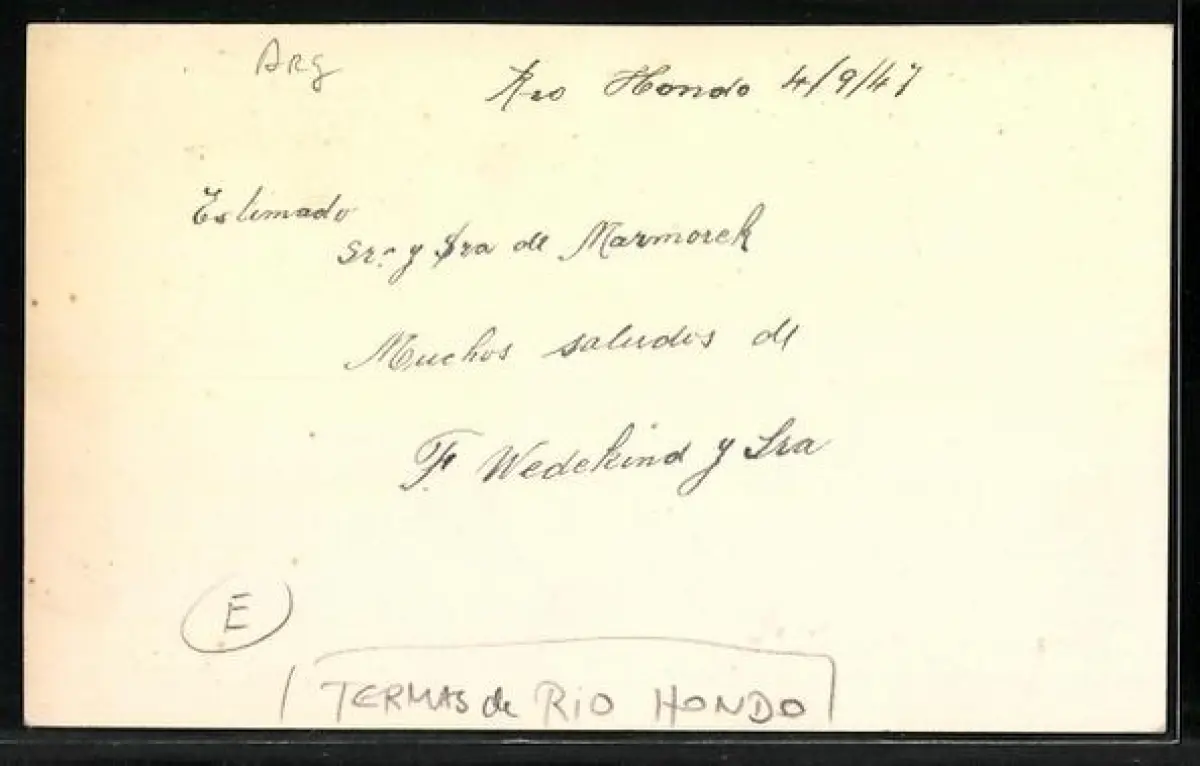 Arg
Rio Hondo 4/9/47
Estimado
Sr. y Sra de Marmorek
Muchos saludos de
F. Wedekind y Sra
E
TERMAS de RIO HONDO